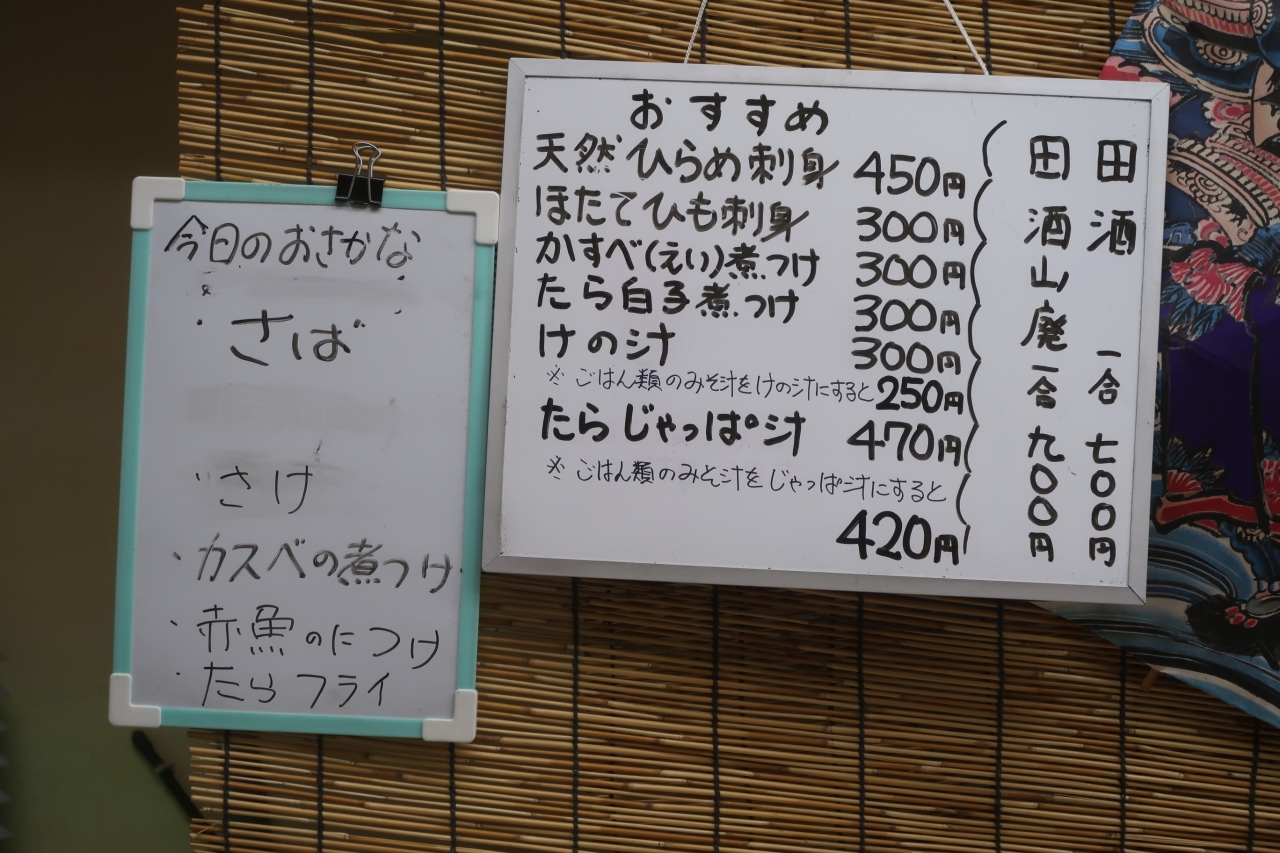 今日のおさかな
・さば
・さけ
・カスベの煮つけ
・赤魚のにつけ
・たらフライ
おすすめ
天然ひらめ刺身 450円
ほたてひも刺身 300円
かすべ(えい)煮つけ 300円
たら白子煮つけ 300円
けの汁 300円
※ごはん類のみそ汁をけの汁にすると250円
たらじゃっぱ汁 470円
※ごはん類のみそ汁をじゃっぱ汁にすると
420円
田酒 一合 七〇〇円
田酒山廃 一合 九〇〇円